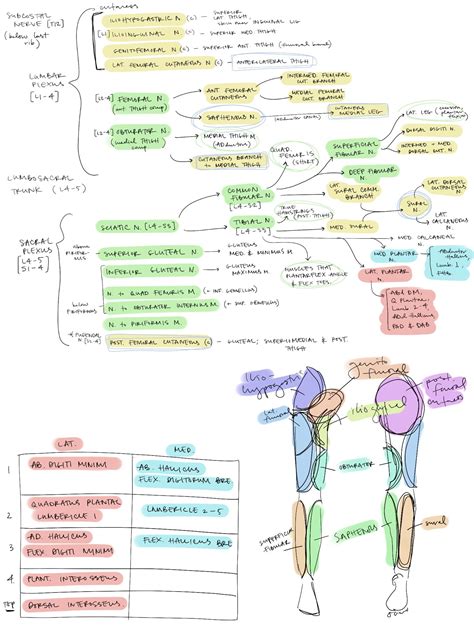 SUBCOSTAL
NERVE [T12]
(below last
rib)
cutaneous
ILIOHYPOGASTRIC N. (c) - SUPERIOR
LAT THIGH
[L1] ILIOINGUINAL N. (c) - SUPERIOR MED THIGH
GENITOFEMORAL N (c) - SUPERIOR ANT THIGH
LAT FEMORAL CUTANEOUS N (c) ANTEROLATERAL THIGH
LUMBAR
PLEXUS
[L1-4]
[L2-4] FEMORAL N
(ant THIGH comp)
ANT FEMORAL
CUTANEOUS
INTERMED FEMORAL
CUT. BRANCH
MEDIAL FEMORAL
CUT. BRANCH
SAPHENOUS N
CUTANEOUS
MEDIAL LEG
[L2-4] OBTURATOR N
(medial THIGH
comp)
MEDIAL THIGH M.
(Adductors)
CUTANEOUS BRANCH
to MEDIAL THIGH
QUAD.
FEMORIS
(SHORT)
SUPERFICIAL
FIBULAR N
LAT. LEG
DORSAL DIGITI N.
INTERMED + MED
DORSAL CUT. N.
DEEP FIBULAR
N.
LUMBOSACRAL
TRUNK (L4-5)
SACRAL
PLEXUS
[L4-5
S1-4]
SCIATIC N. [L4-S3]
COMMON
FIBULAR N
[L4-S2]
TIBIAL N.
[L4-S3]
TRUE
HAMSTRINGS
(POST. THIGH)
LAT
SURAL COMM.
BRANCH
MED. SURAL
SURAL
N.
LAT. DORSAL
CUTANEOUS
N.
LAT
CALCANEAL
N.
MED CALCANEAL
N.
MED PLANTAR
N.
LAT. PLANTAR
N.
Abductor
Hallucis,
Lumb. 1,
Abd DM,
Q Plantae
Lumb 2-4
Add Hallucis
PAD & DAB
MUSCLES THAT
PLANTARFLEX ANGLE
& FLEX TOES.
above
PIRIFORMIS
SUPERIOR GLUTEAL N.
GLUTEUS
MED & MINIMUS M.
INFERIOR GLUTEAL N.
GLUTEUS
MAXIMUS M.
below
PIRIFORMIS
N. to QUAD FEMORIS M (+ INF. GEMELLUS)
N. to OBTURATOR INTERNUS M. (+ SUP. GEMELLUS)
N. to PIRIFORMIS M.
PUDENDAL N.
POST. FEMORAL CUTANEOUS (c) - GLUTEAL, SUPEROMEDIAL & POST.
THIGH
LAT.
MED.
1
AB. DIGITI MINIMI
AB. HALLUCUS
FLEX DIGITORUM BRE
2
QUADRATUS PLANTAE
LUMBERICLE 1
LUMBERICLE 2-5
3
AD. HALLUCUS
FLEX DIGITI MINIMI
FLEX. HALLUCUS BRE
4.
PLANT. INTEROSSEUS
TOP
DORSAL INTEROSSEUS
ilio-
hypogastric
genito
femoral
lat.
femoral
ilioinguinal
post.
femoral
cutaneous
OBTURATOR
SUPERFICIAL
FIBULAR
SAPHENOUS
sural